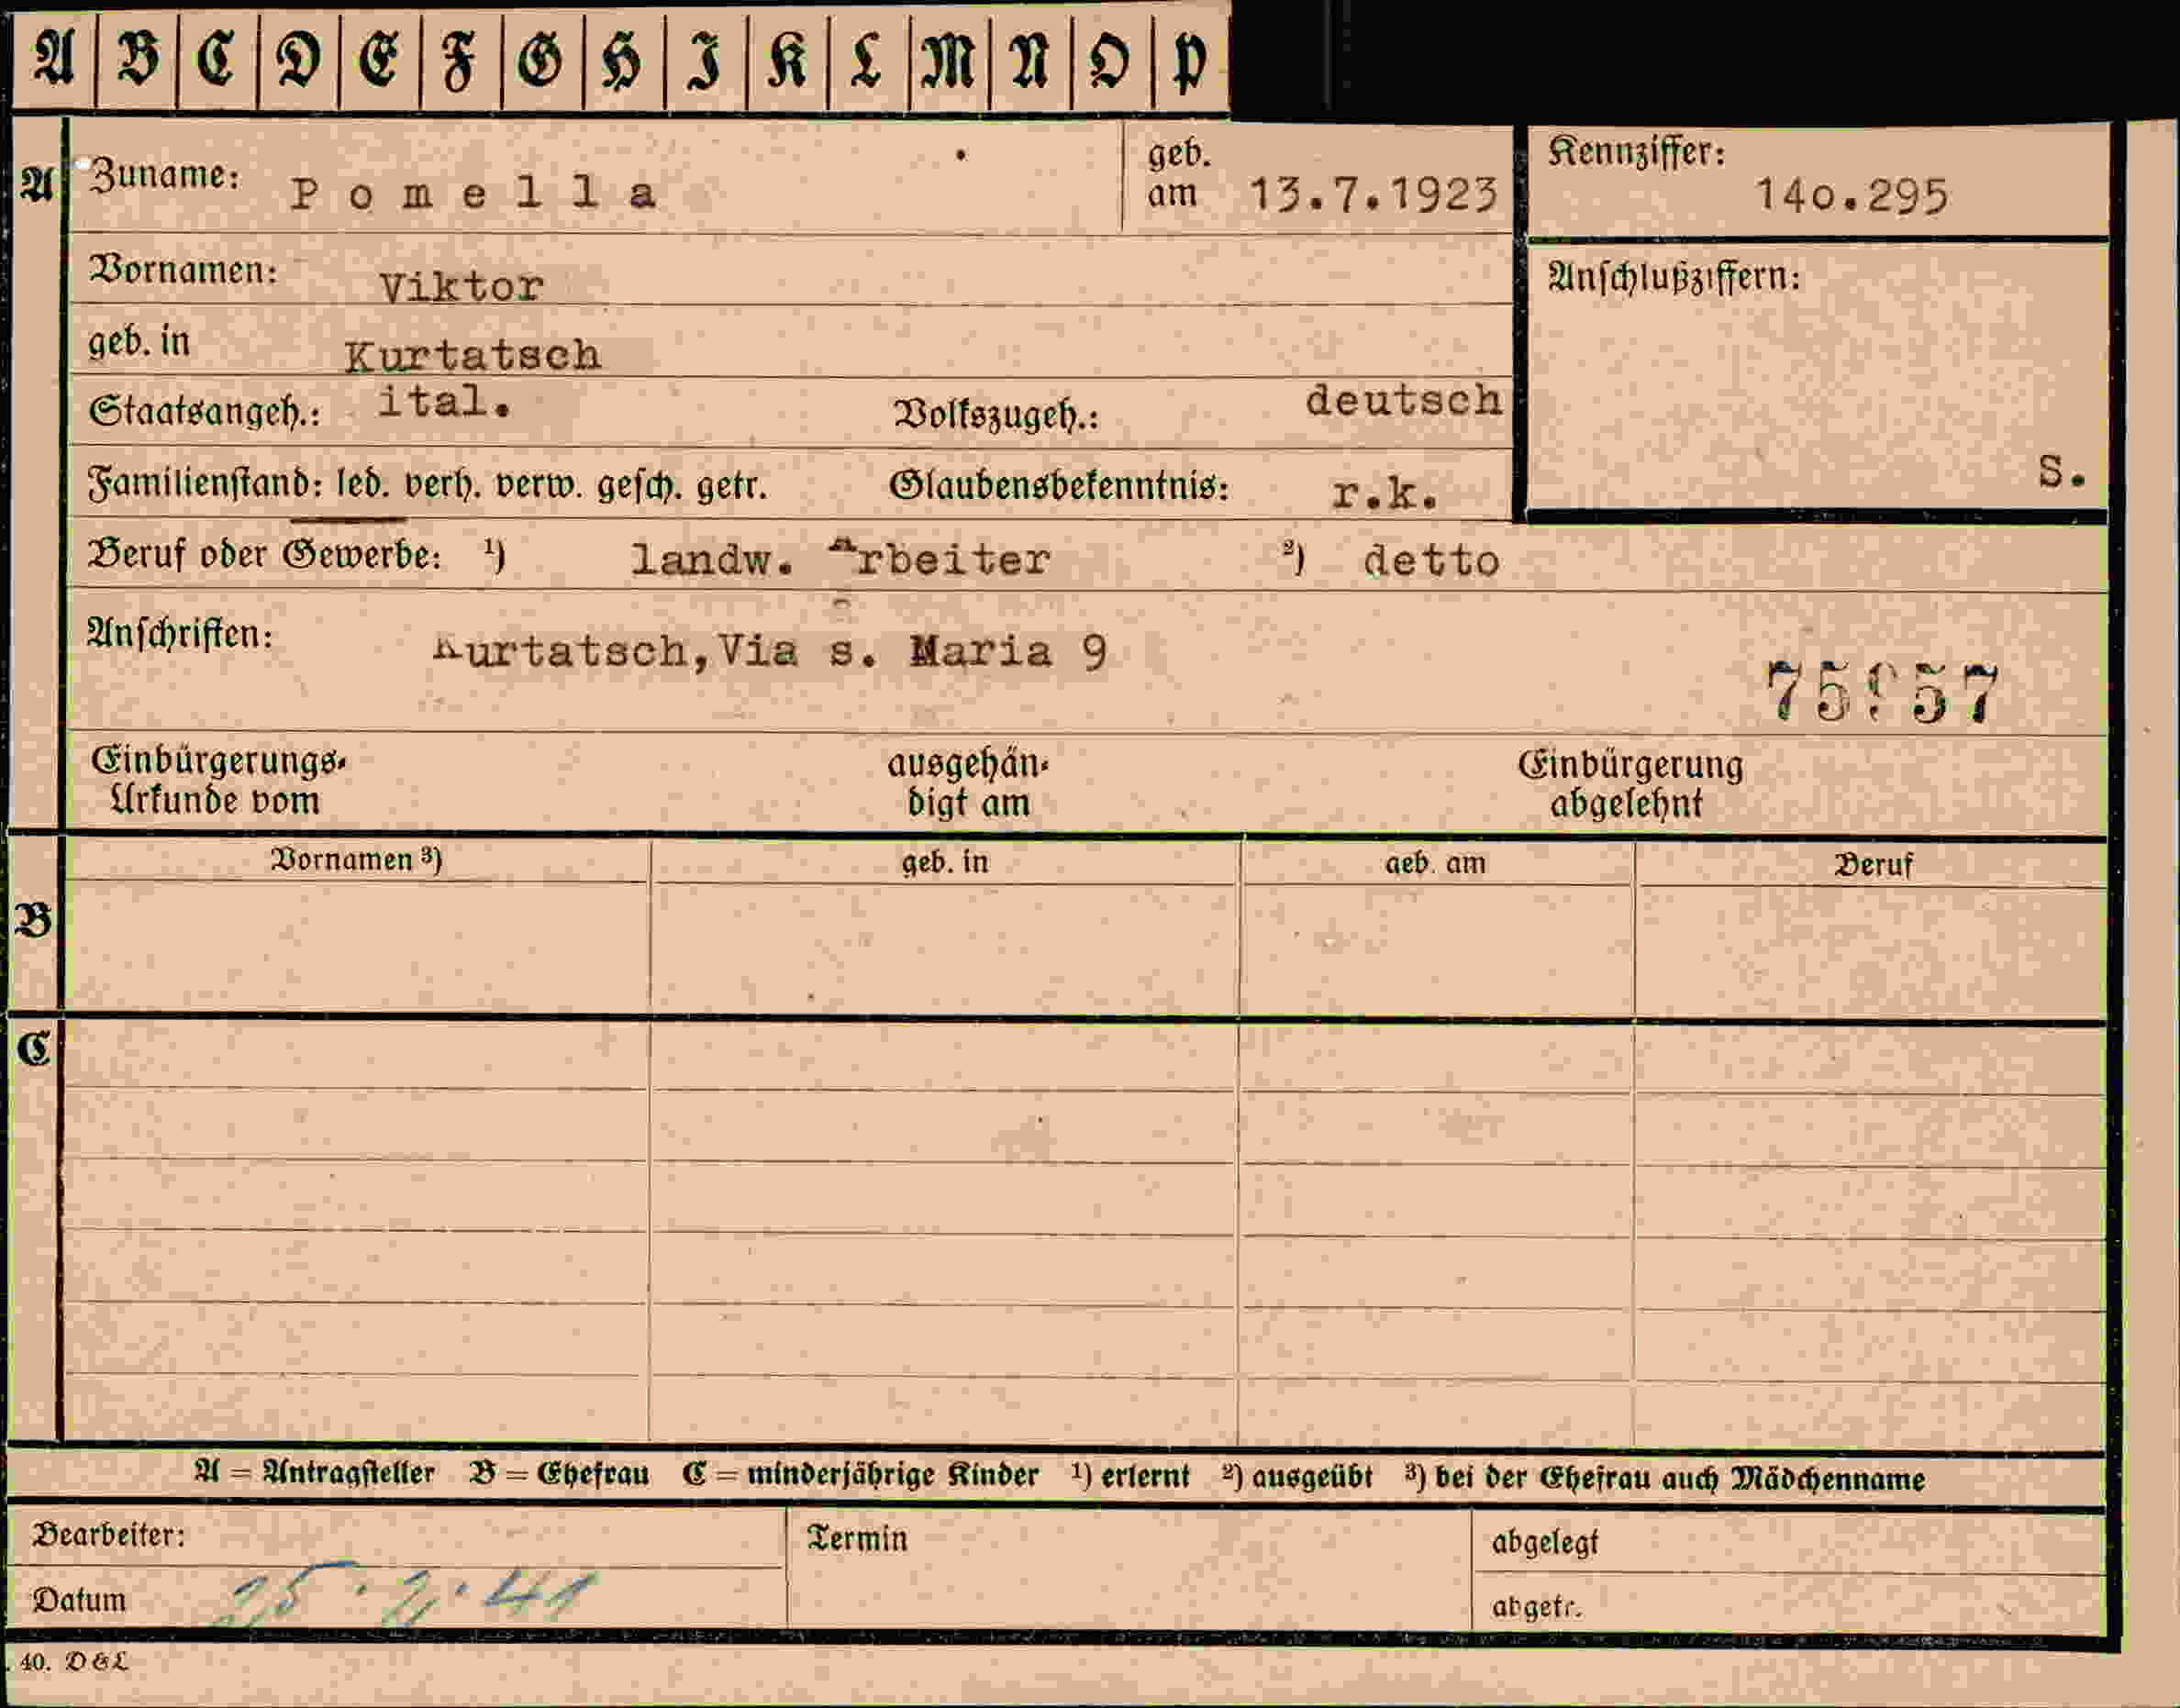 A B C D E F G H I K L M N O P
A Zuname: Pomella geb. am 13.7.1923 Kennziffer: 14o.295
Vornamen: Viktor Anschlußziffern:
geb. in Kurtatsch
Staatsangeh.: ital. Volkszugeh.: deutsch
S.
Familienstand: led. verh. verw. gesch. getr. Glaubensbekenntnis: r.k.
Beruf oder Gewerbe: ¹) landw. Arbeiter ²) detto
Anschriften: Kurtatsch,Via s. Maria 9
Einbürgerungs-Urkunde vom ausgehändigt am Einbürgerung abgelehnt
Vornamen ³) geb. in geb. am Beruf
B
C
A = Antragsteller B = Ehefrau C = minderjährige Kinder ¹) erlernt ²) ausgeübt ³) bei der Ehefrau auch Mädchenname
Bearbeiter: Termin abgelegt
Datum 25.2.41 abgetr.
40. D & L